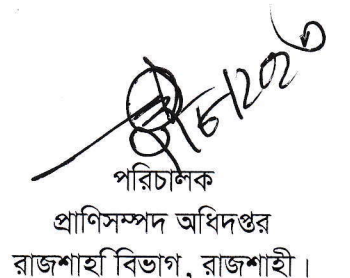 পরিচালক
প্রাণিসম্পদ অধিদপ্তর
রাজশাহী বিভাগ, রাজশাহী।